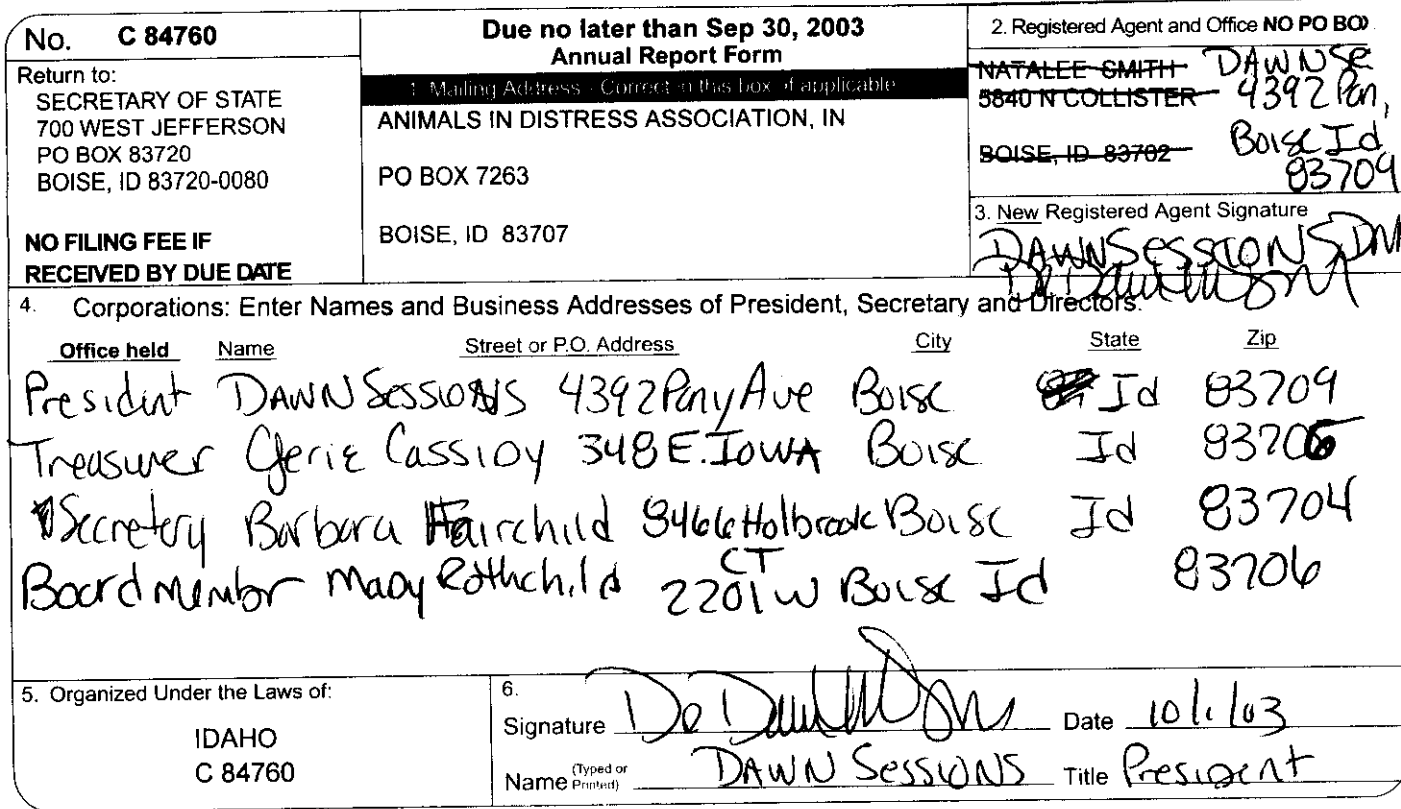 No. C 84760
Return to:
SECRETARY OF STATE
700 WEST JEFFERSON
PO BOX 83720
BOISE, ID 83720-0080
NO FILING FEE IF
RECEIVED BY DUE DATE
Due no later than Sep 30, 2003
Annual Report Form
1. Mailing Address - Correct in this box if applicable
ANIMALS IN DISTRESS ASSOCIATION, IN
PO BOX 7263
BOISE, ID 83707
2. Registered Agent and Office NO PO BOX
NATALEE SMITH DAWN SE
5840 N COLLISTER 4392 Pony
BOISE, ID 83702 Boise Id
83709
3. New Registered Agent Signature
DAWN SESSIONS
4. Corporations: Enter Names and Business Addresses of President, Secretary and Directors.
Office held Name Street or P.O. Address City State Zip
President DAWN SESSIONS 4392 Pony Ave Boise Id 83709
Treasurer Cassidy 348 E. IOWA Boise Id 83706
Secretery Barbara Fairchild 8466 Holbrook CT Boise Id 83704
Board member Rothchild 2201 W Boise Id 83706
5. Organized Under the Laws of:
IDAHO
C 84760
6.
Signature Date 10/1/03
Name (Typed or Printed) DAWN SESSIONS Title President